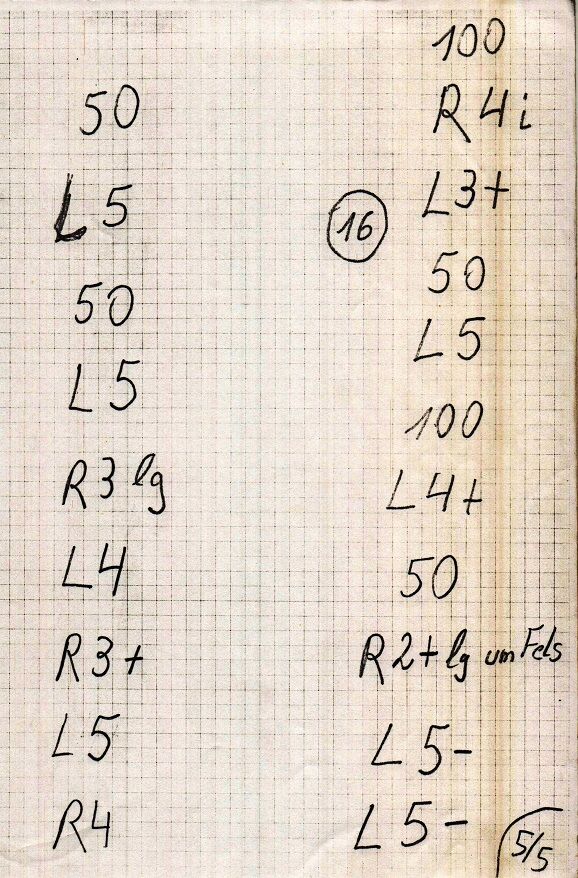 50
L5
50
L5
R3 lg
L4
R3+
L5
R4
100
R4i
L3+
16
50
L5
100
L4+
50
R2+ lg um Fels
L5-
L5-
5/5